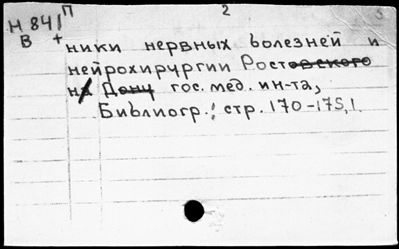 Н 841 П 2
В +
ники нервных болезней и
нейрохирургии Ростовского
на Дону гос. мед. ин-та,
Библиогр.: стр. 170-175,1.